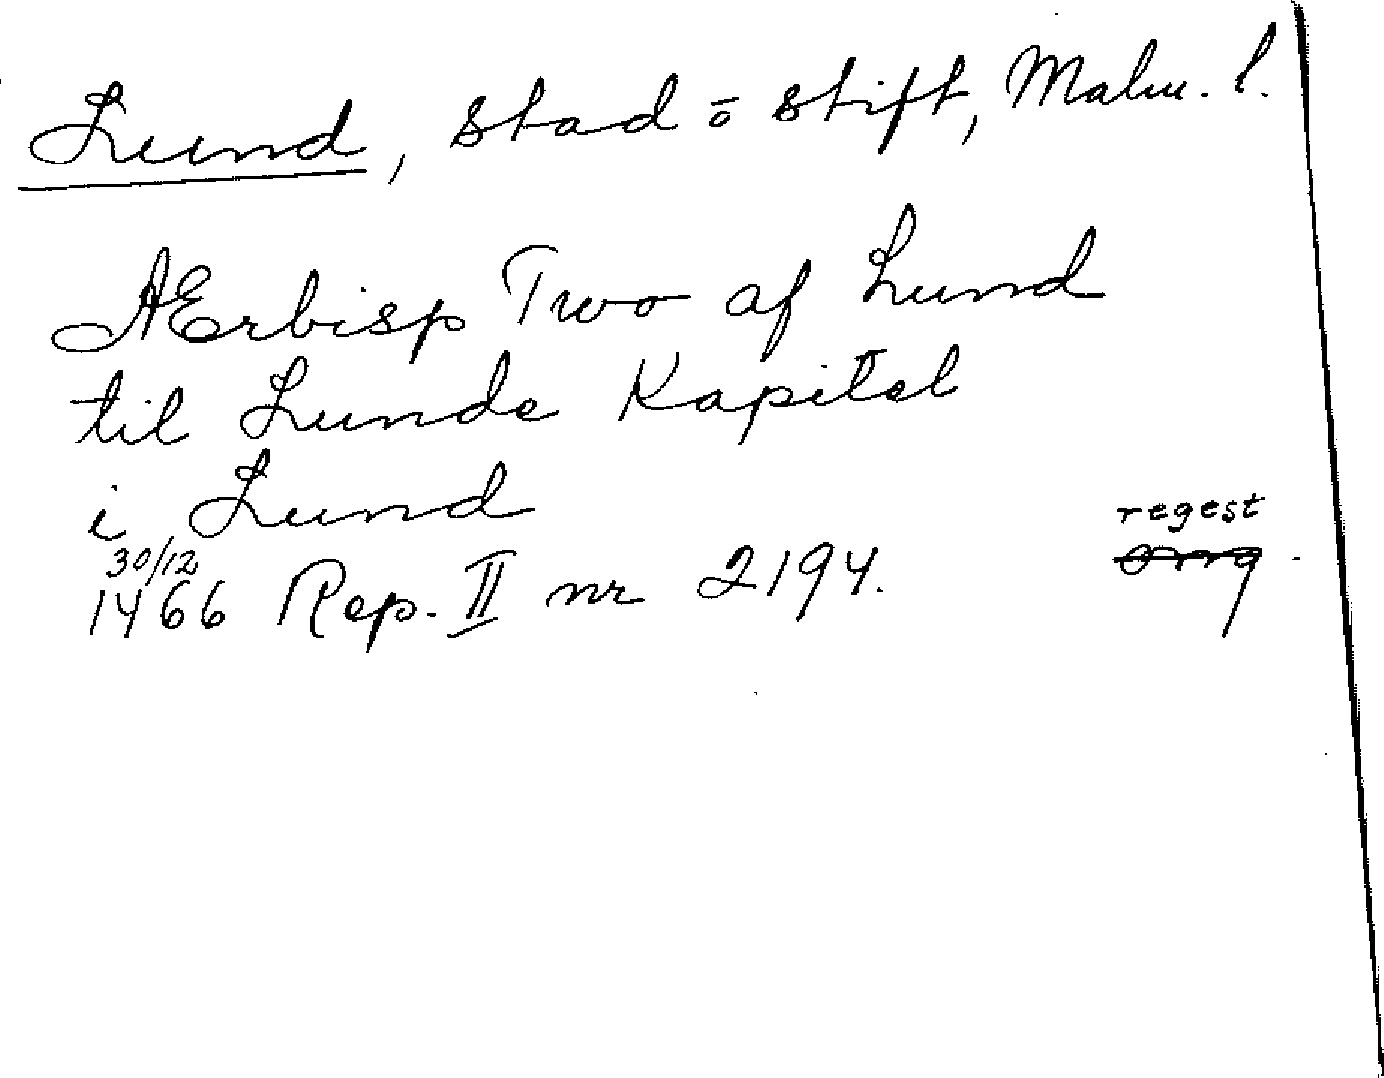 Lund, stad o stift, Malm. l.
AErbisp Two af Lund
til Lunde Kapitel
i Lund
regest
30/12
1466 Rep. II nr 2194.